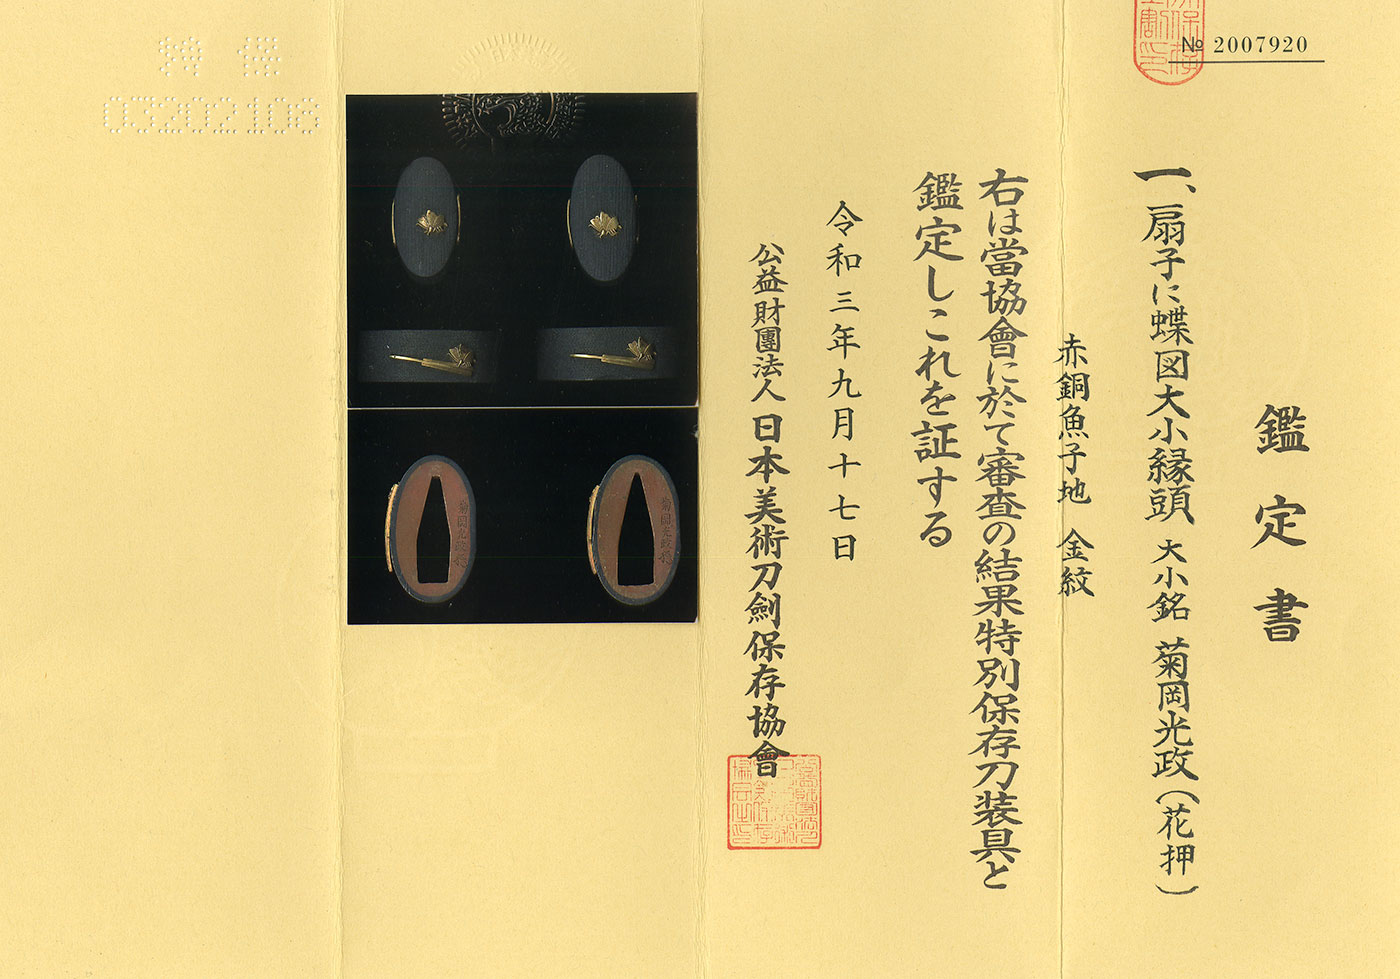 № 2007920
鑑定書
一、扇子に蝶図大小縁頭 大小銘 菊岡光政(花押)
赤銅魚子地 金紋
右は當協會に於て審査の結果特別保存刀装具と
鑑定しこれを証する
令和三年九月十七日
公益財團法人 日本美術刀劍保存協會
03202106
菊岡光政
菊岡光政